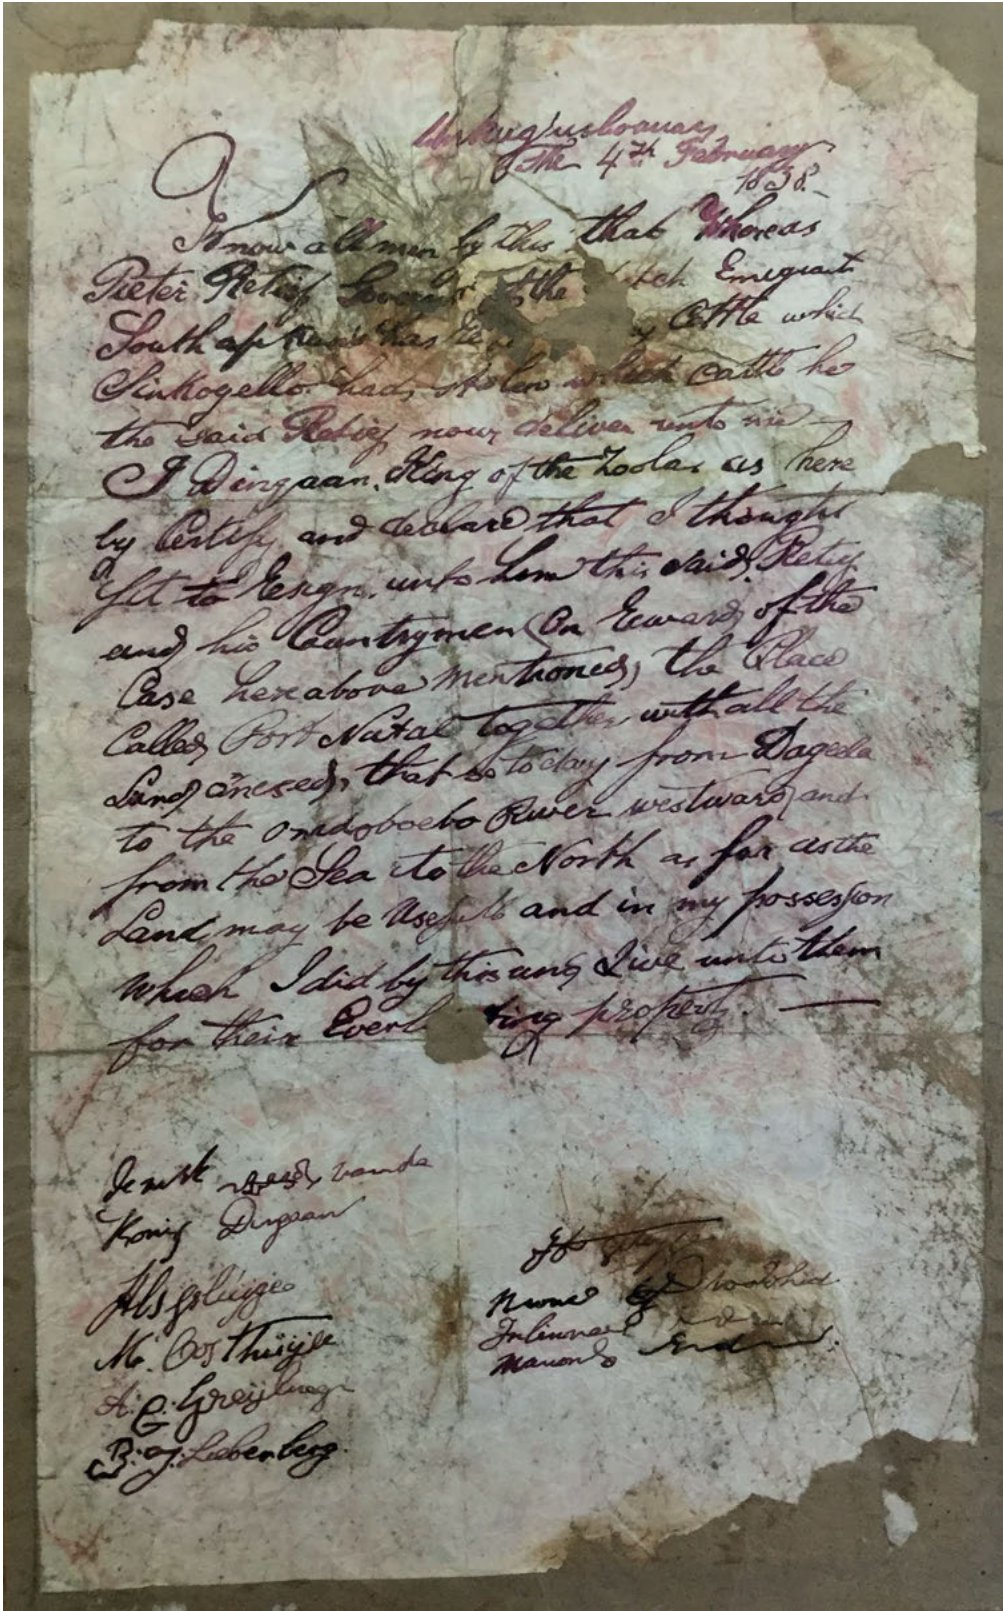 Unkunginsloave
the 4th February
1838.
Know all men by this that Whereas
Pieter Retief Governor of the Emigrant
South has Cattle which
Sinkogello had stolen which cattle he
the said Retief now deliver unto me —
I Dingaan, King of the Zoolas as here
by Certify and declare that I thought
fit to Resign unto him this said, Retief
and his Countrymen (on Reward of the
Case hereabove Mentioned) the Place
Called Port Natal together with all the
Land anexed, that is to day from Dogela
to the Omsoboebo River westward and
from the Sea to the North as far as the
Land may be Usefull and in my possession
which I did by this and Give unto them
for their property. —
vande
Konig Dingaan
M. Oosthuyse
A. C. Greyling
B. J. Liebenberg.